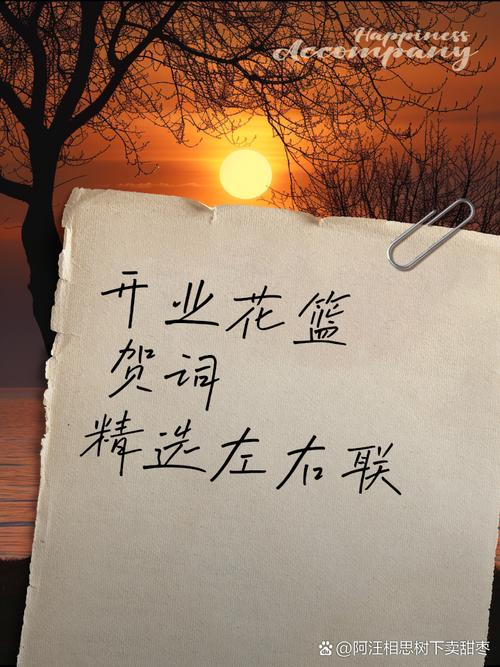 Happiness
Accompany
开业花篮
贺词
精选左右联
@阿汪相思树下卖甜枣